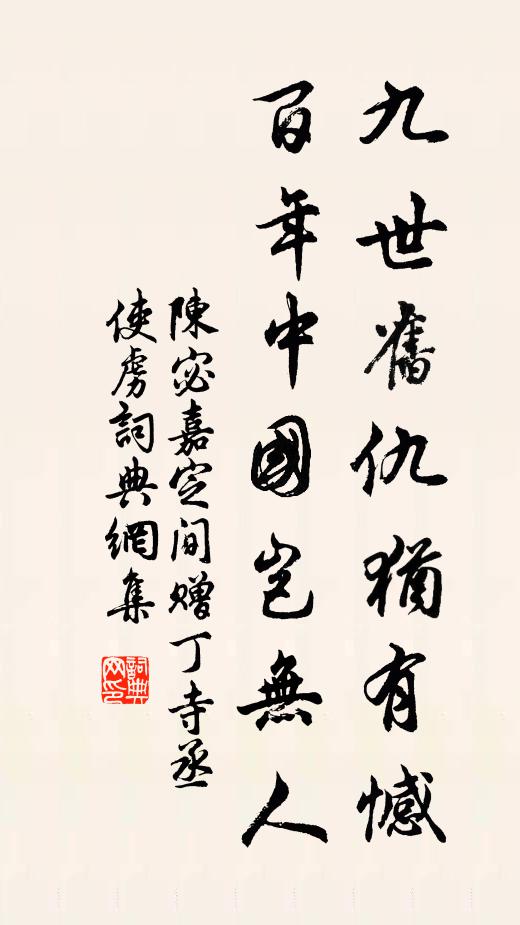 九世舊仇猶有憾
百年中國豈無人
陳宓嘉定间赠丁寺丞
使虜詞典網集
詞典网印